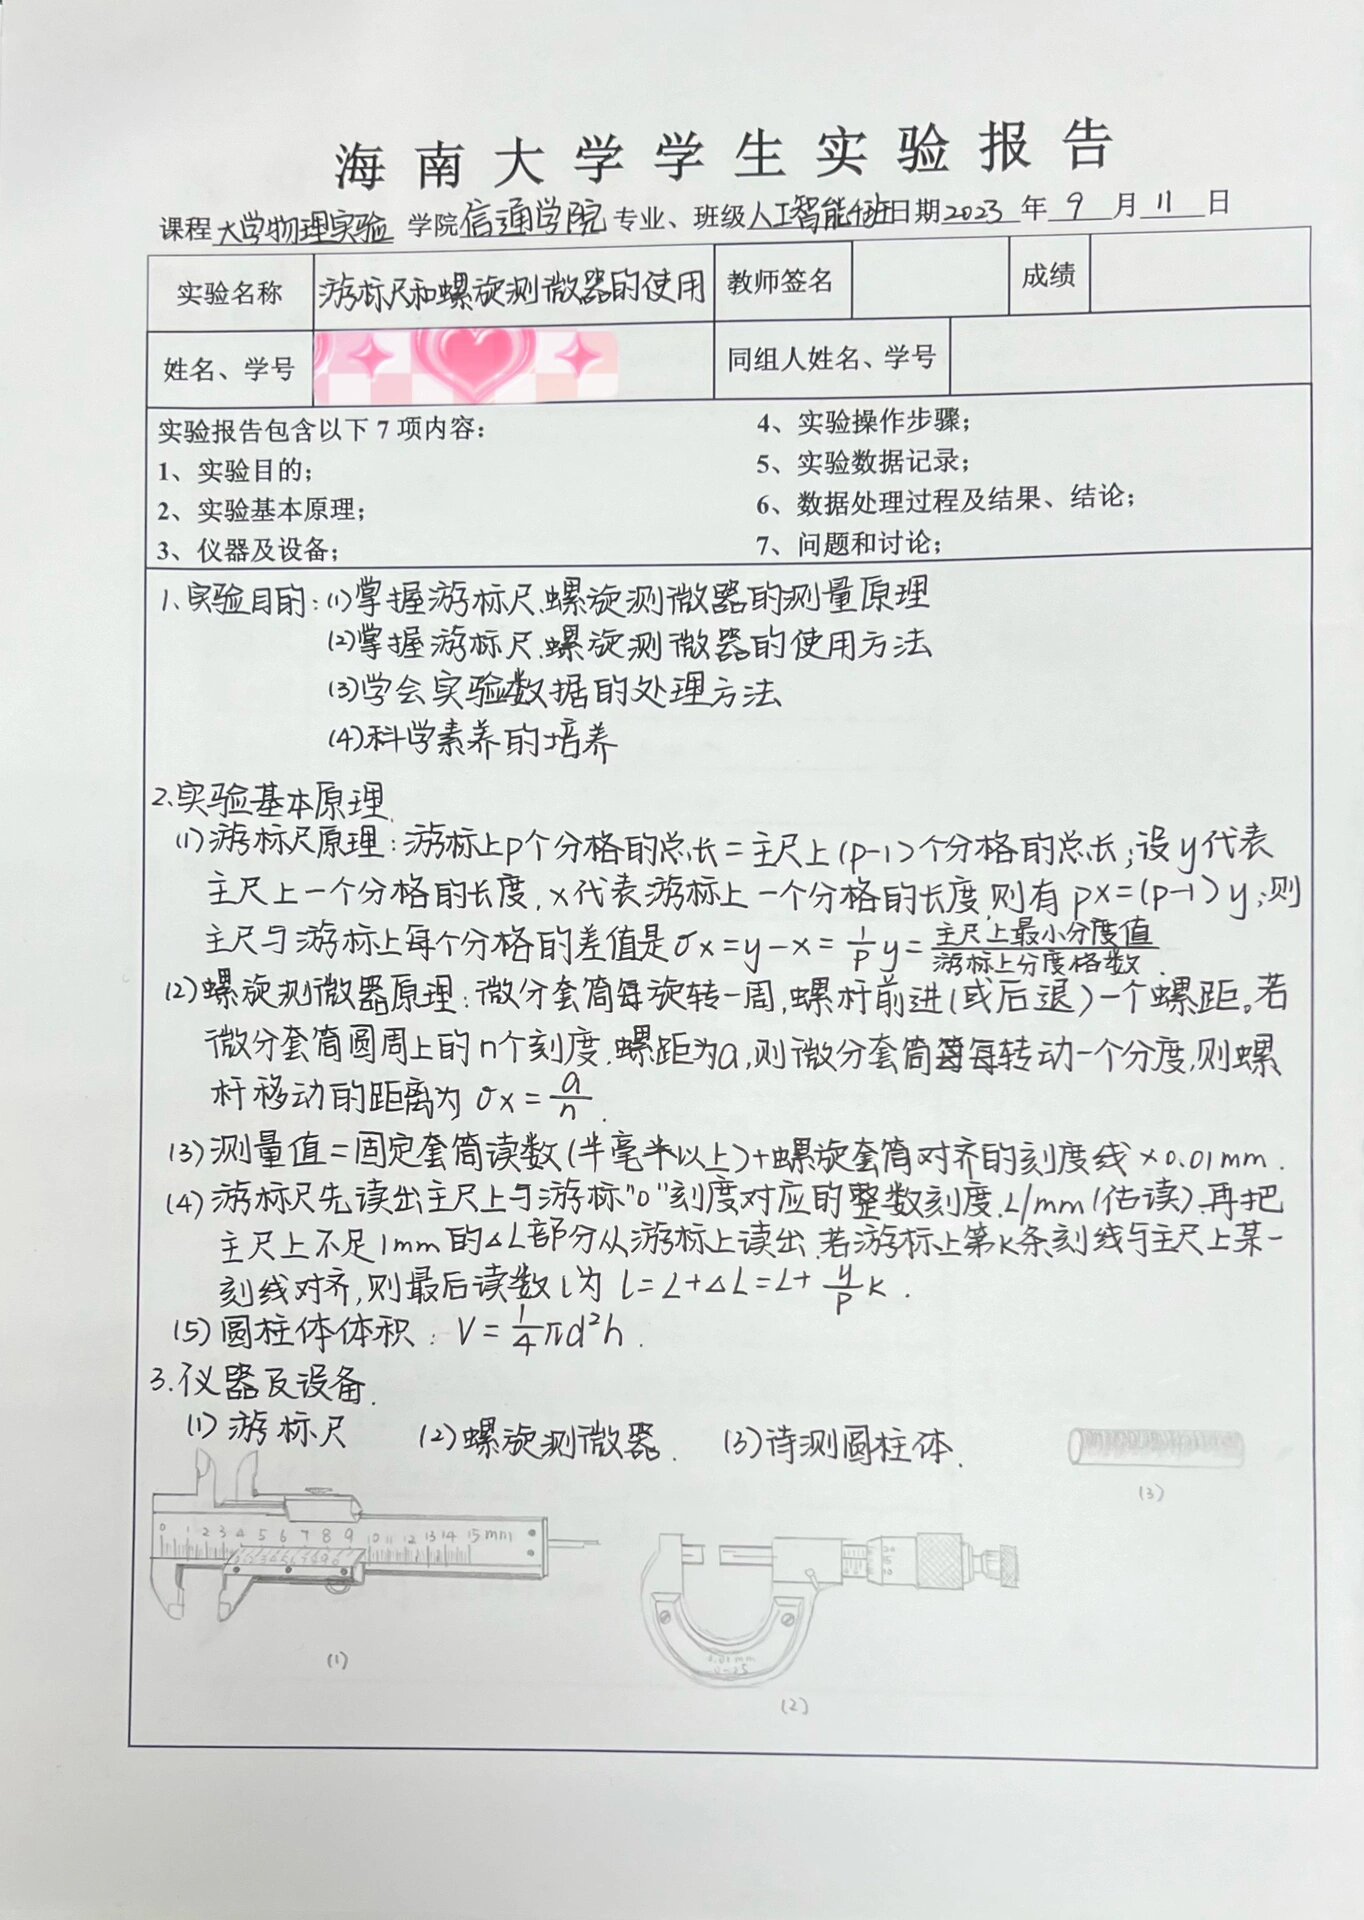 海南大学学生实验报告
课程大学物理实验 学院信通学院 专业、班级人工智能班日期2023年9月11日
实验名称 游标尺和螺旋测微器的使用 教师签名 成绩
姓名、学号 同组人姓名、学号
实验报告包含以下7项内容：
1、实验目的；
2、实验基本原理；
3、仪器及设备；
4、实验操作步骤；
5、实验数据记录；
6、数据处理过程及结果、结论；
7、问题和讨论；
1、实验目的：(1)掌握游标尺、螺旋测微器的测量原理
(2)掌握游标尺、螺旋测微器的使用方法
(3)学会实验数据的处理方法
(4)科学素养的培养
2、实验基本原理.
(1)游标尺原理：游标上p个分格的总长=主尺上(p-1)个分格的总长；设y代表
主尺上一个分格的长度，x代表游标上一个分格的长度，则有px=(p-1)y；则
主尺与游标上每个分格的差值是σx=y-x=1/p y=主尺上最小分度值/游标上分度格数.
(2)螺旋测微器原理：微分套筒每旋转一周，螺杆前进(或后退)一个螺距。若
微分套筒圆周上的n个刻度，螺距为a，则微分套筒每转动一个分度，则螺
杆移动的距离为σx=a/n.
(3)测量值=固定套筒读数(半毫米以上)+螺旋套筒对齐的刻度线×0.01mm.
(4)游标尺先读出主尺上与游标"0"刻度对应的整数刻度L/mm(估读)，再把
主尺上不足1mm的△L部分从游标上读出，若游标上第k条刻线与主尺上某一
刻线对齐，则最后读数l为 l=L+△L=L+y/p k.
(5)圆柱体体积：V=1/4πd²h.
3.仪器及设备.
(1)游标尺 (2)螺旋测微器. (3)待测圆柱体.
(3)
0 1 2 3 4 5 6 7 8 9 10 11 12 13 14 15 mm
0.01mm
0-25
(1)
(2)